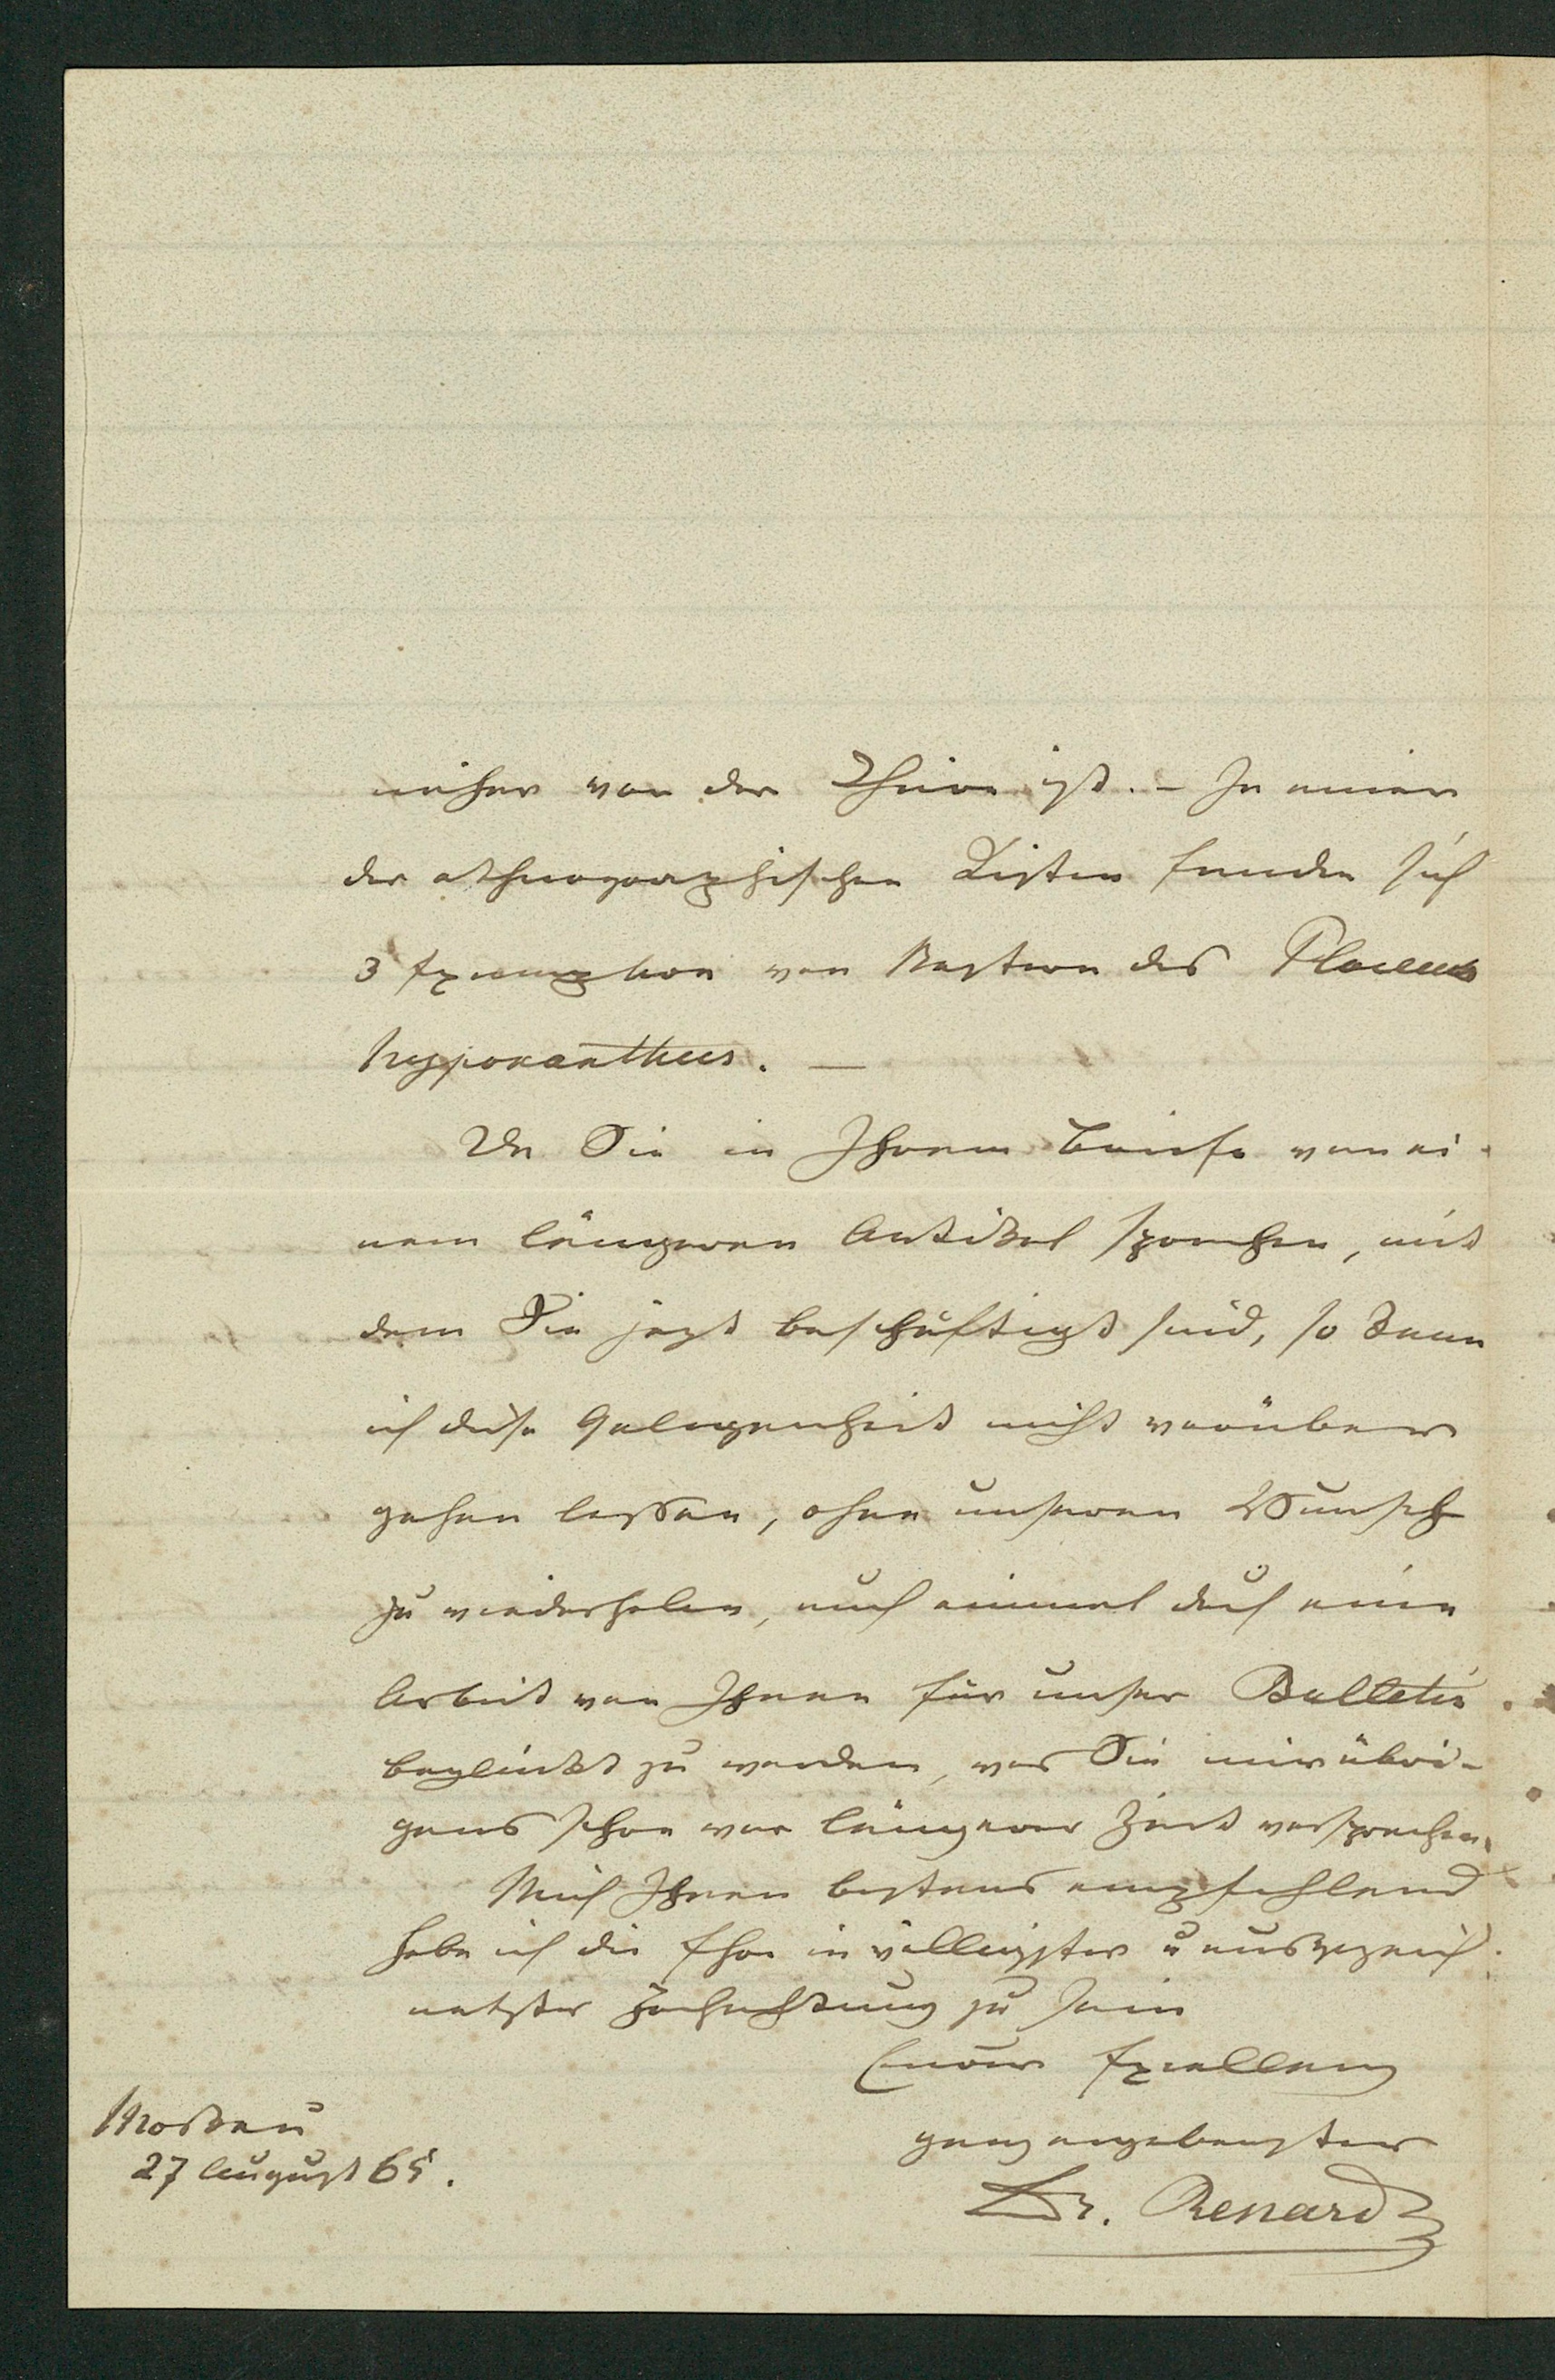 näher von der Thüre ist. – In einer
der ethnographischen Kisten fanden sich
3 Exemplare von Nestern des Ploceus
hypoxanthus. —
Da Sie in Ihrem Briefe von ei-
nem längeren Artikel sprechen, mit
dem Sie jezt beschäftigt sind, so kann
ich diese Gelegenheit nicht vorüber
gehen lassen, ohne unseren Wunsch
zu wiederholen, auch einmal durch eine
Arbeit von Ihnen für unser Bulletin
beglückt zu werden, was Sie mir übri-
gens schon vor längerer Zeit versprochen.
Mich Ihnen bestens empfehlend
habe ich die Ehre in völligster u ausgezeich-
netster Hochachtung zu sein
Euer Excellenz
ganz ergebenster
Dr. Renard
Moskau
27 August 65.